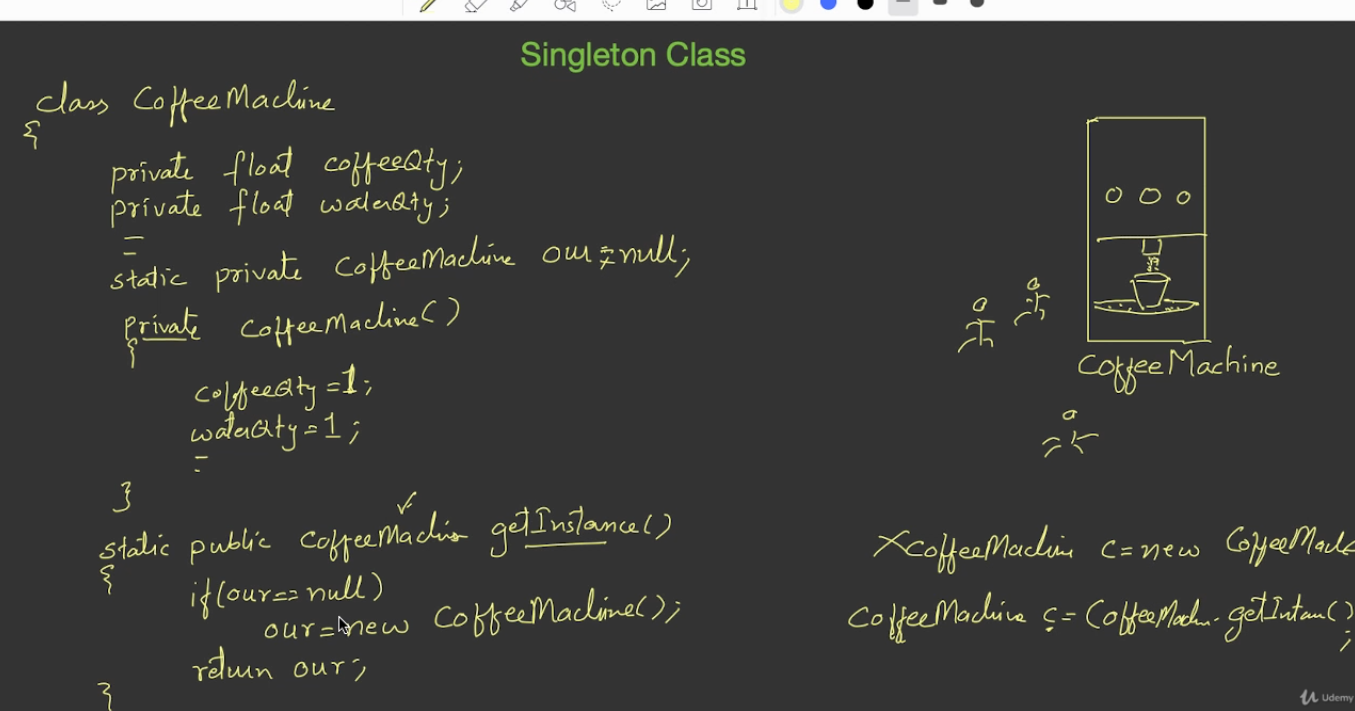 Singleton Class
class CoffeeMachine
{
private float coffeeQty;
private float waterQty;
static private CoffeeMachine our = null;
private CoffeeMachine()
{
coffeeQty = 1;
waterQty = 1;
}
static public CoffeeMachin getInstance()
{
if(our == null)
our = new CoffeeMachine();
return our;
}
CoffeeMachine
X CoffeeMachin c = new CoffeeMach
CoffeeMachine c = CoffeeMachn.getIntan();
Udemy